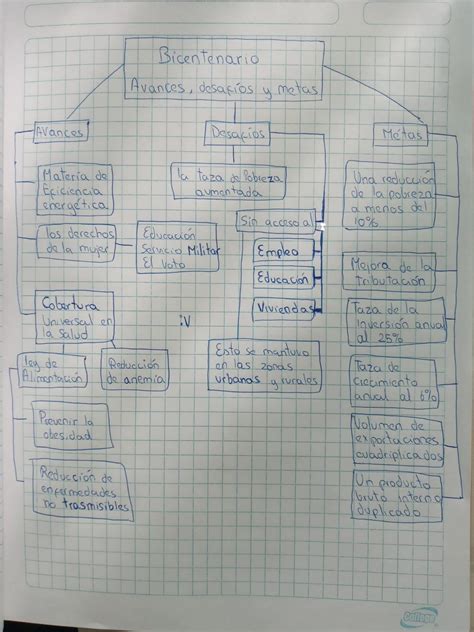 Bicentenario
Avances, desafíos y metas
Avances
Materia de
Eficiencia
energética.
los derechos
de la mujer
Educación
Servicio Militar
El Voto
Cobertura
Universal en
la salud
ley de
Alimentación
Reducción
de anemia
Prevenir la
obesidad
Reducción de
enfermedades
no trasmisibles
Desafíos
la taza de Pobreza
aumentada
Sin acceso al
Empleo
Educación
Viviendas
:V
Esto se mantuvo
en las zonas
urbanas y rurales
Metas
Una reducción
de la pobreza
a menos del
10%
Mejora de la
tributación
Taza de la
inversión anual
al 25%
Taza de
crecimiento
anual al 6%
Volumen de
exportaciones
cuadriplicados
Un producto
bruto interno
duplicado
College